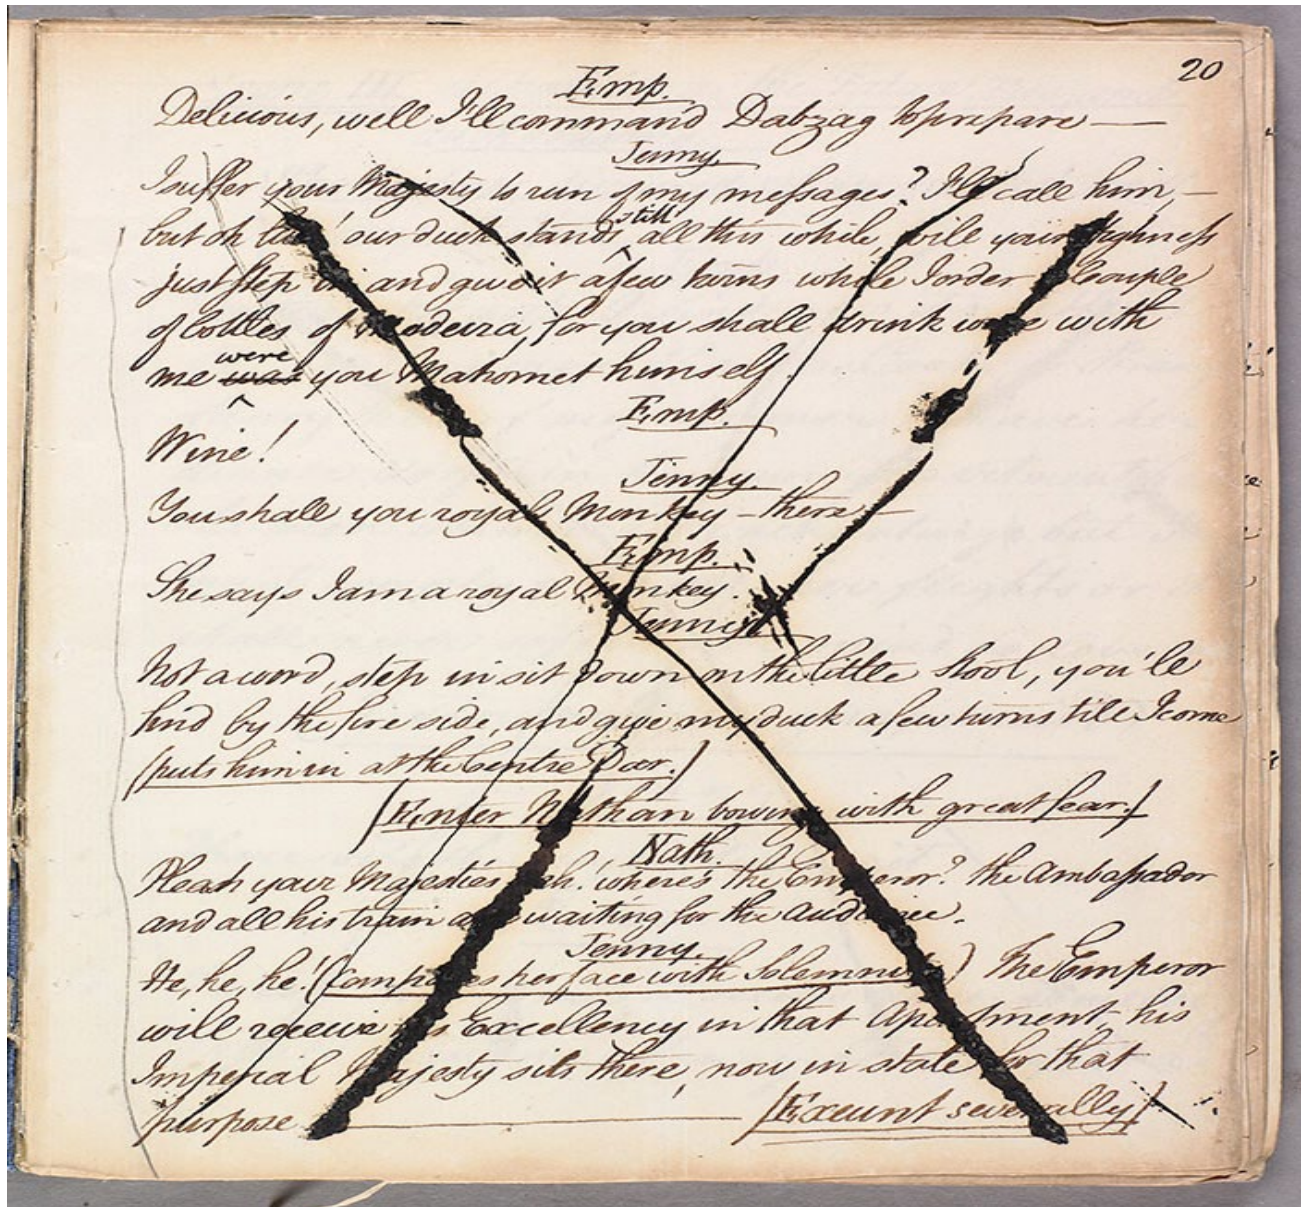 20
Emp.
Delicious, well I'll command Dabzag to prepare —
Jenny.
I suffer your Majesty to run of my messages? I'll call him, —
but oh ! our duck stands still all this while, will your Highness
just step in and give it a few turns while I order a Couple
of bottles of Madeira, for you shall drink wine with
me were was you Mahomet himself.
Emp.
Wine!
Jenny.
You shall you royal Monkey — there —
Emp.
She says I am a royal Monkey.
Jenny.
Not a word, step in sit down on the little stool, you'll
find by the fire side, and give my duck a few turns till I come
(puts him in at the Centre Door.)
[Enter Nathan bowing with great fear.]
Nath.
Pleash your Majesties ah! where's the Emperor? the Ambassador
and all his train are waiting for the audience.
Jenny.
He, he, he! (Composes her face with Solemnity) The Emperor
will receive his Excellency in that Apartment, his
Imperial Majesty sits there, now in state for that
purpose — [Exeunt severally]